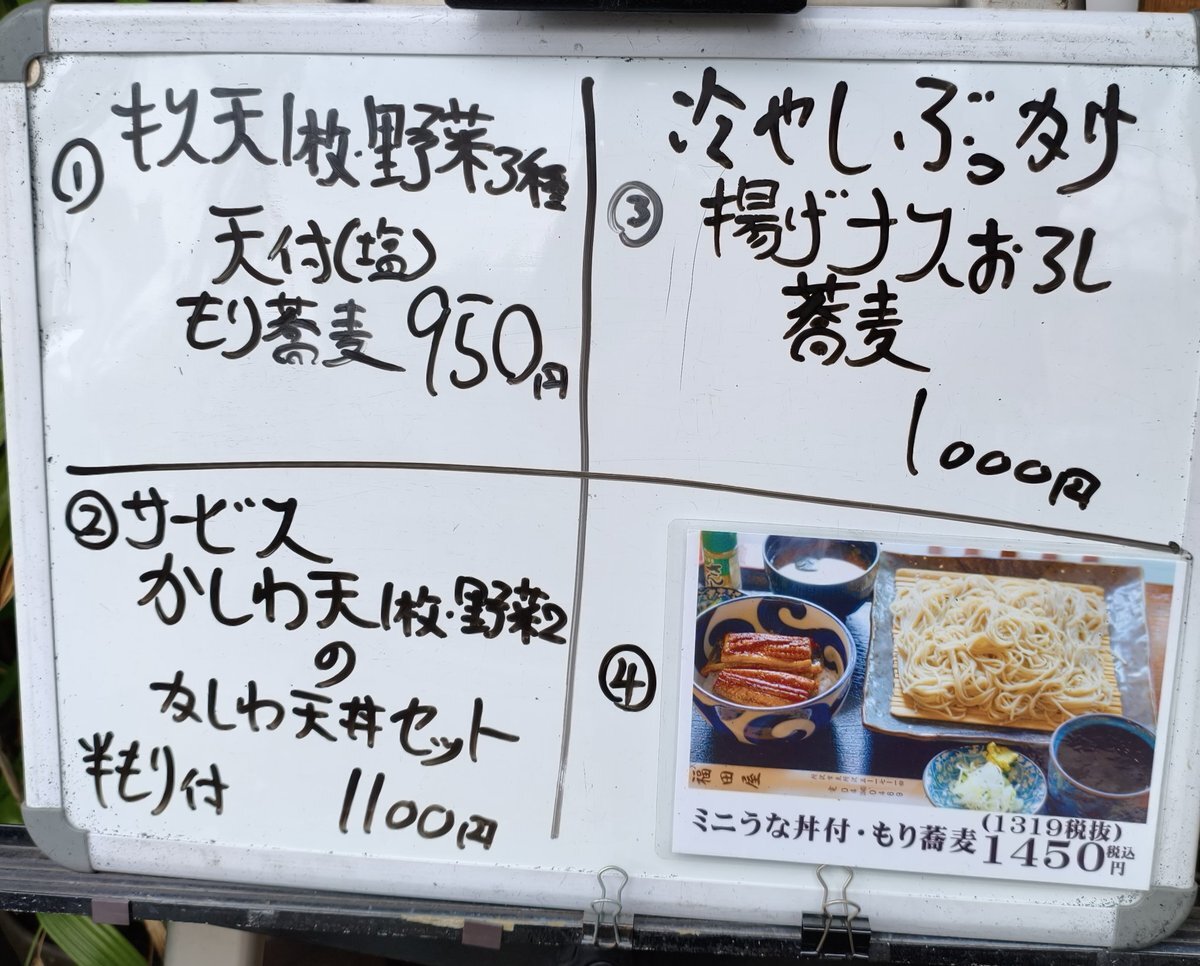 ① キス天1枚・野菜3種
天付(塩)
もり蕎麦 950円
② サービス
かしわ天1枚・野菜2
の
かしわ天丼セット
半もり付 1100円
③ 冷やしぶっかけ
揚げナス、おろし
蕎麦
1000円
④
福田屋
ミニうな丼付・もり蕎麦 (1319税抜)
1450円 税込